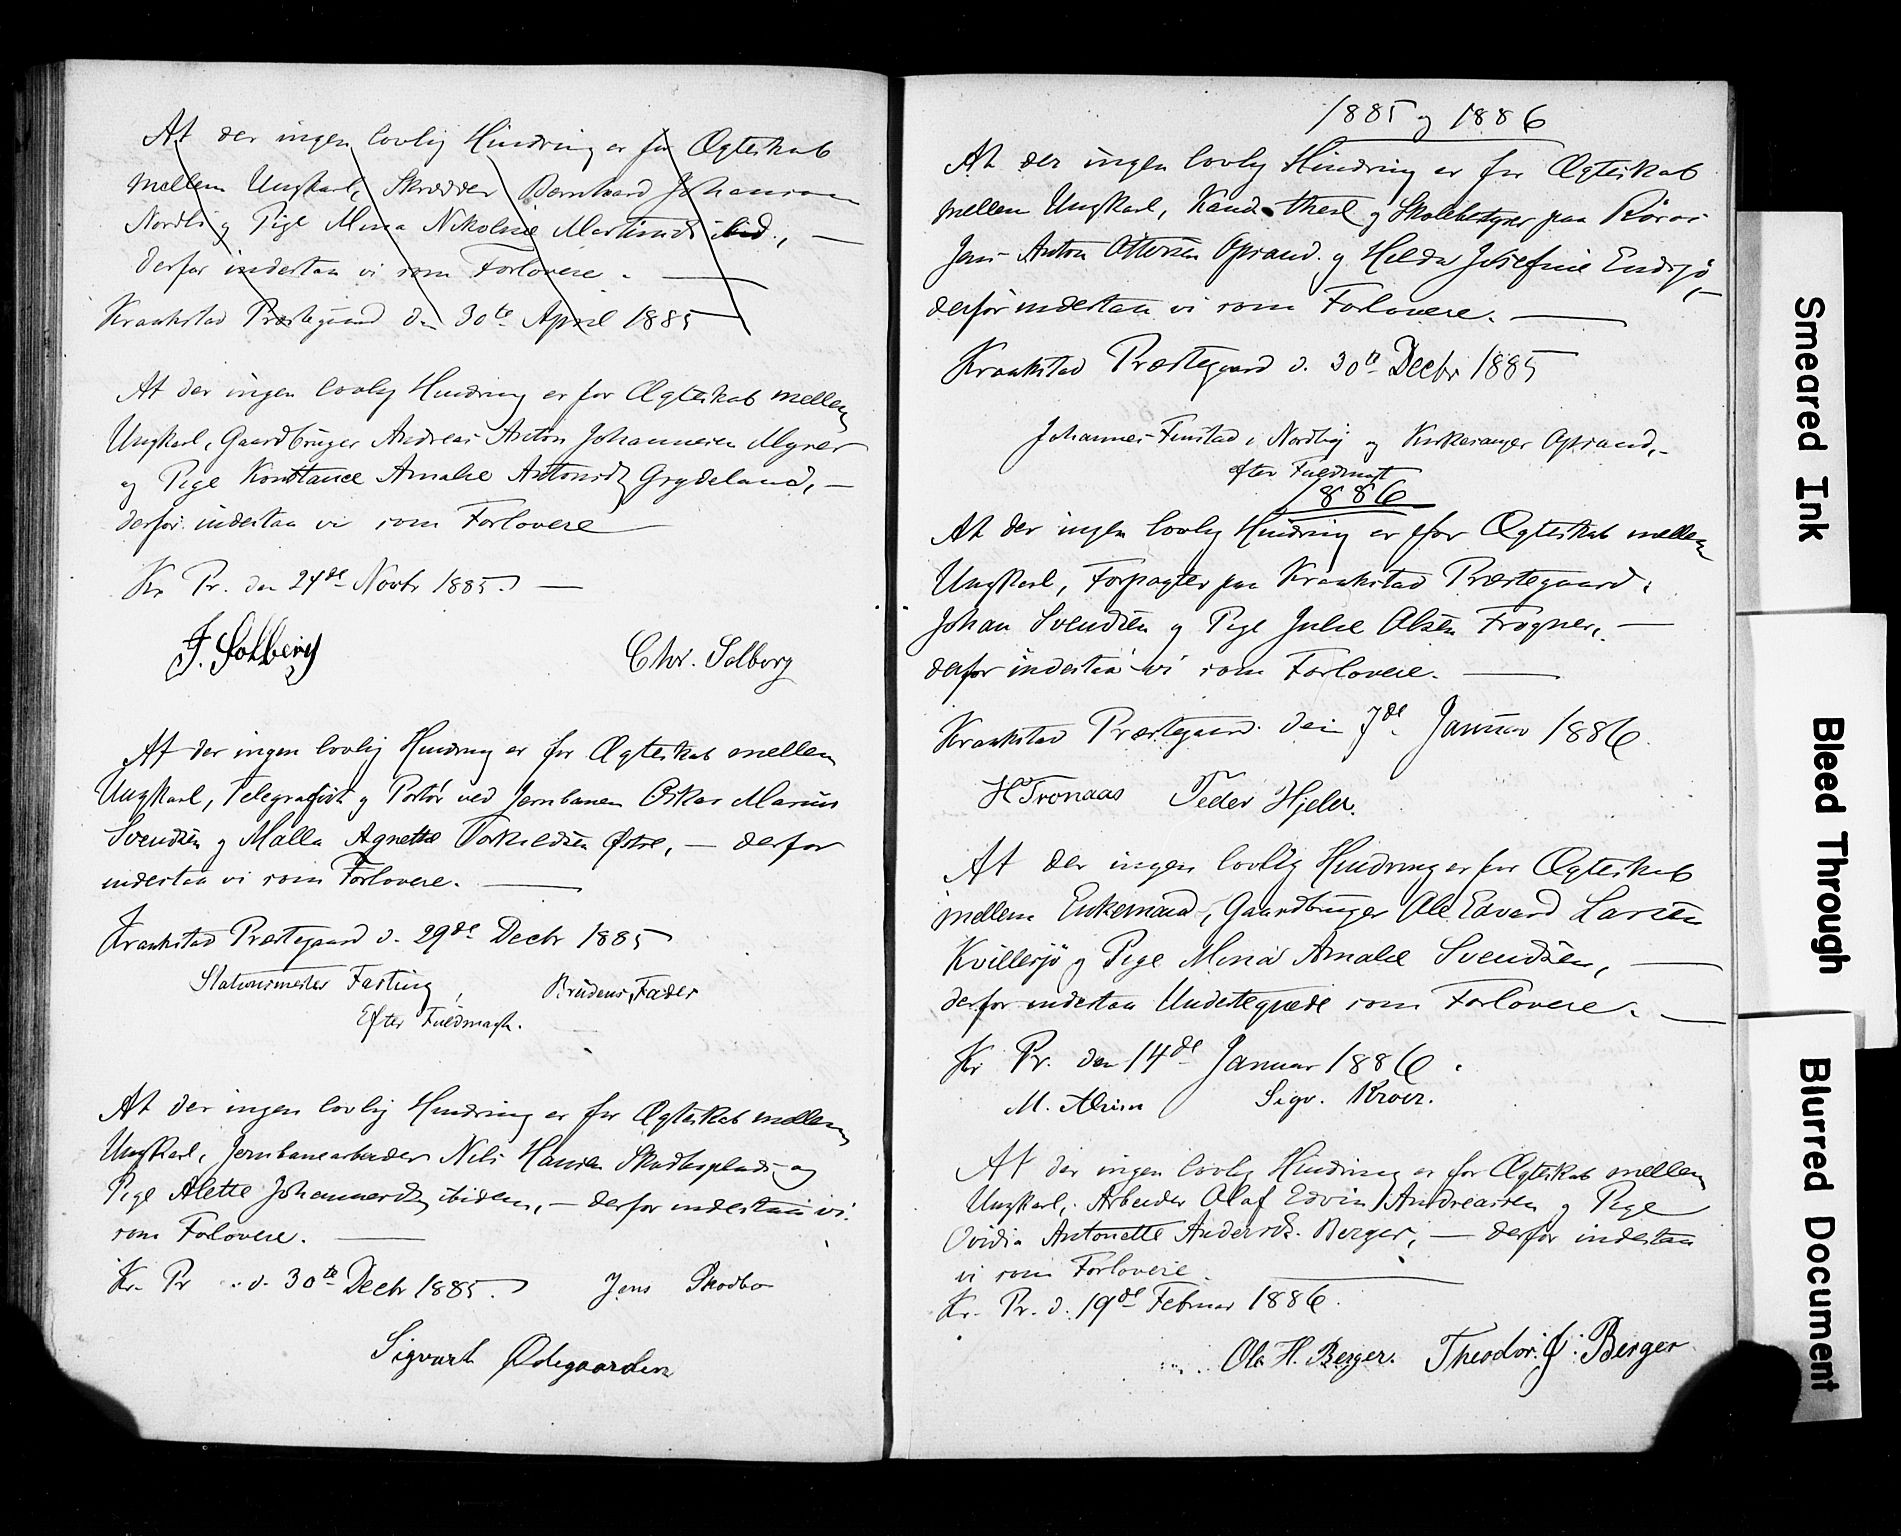 At der ingen lovlig Hindring er for Ægteskab
mellem Ungkarl, Skrædder Bernhard Johansen
Nordli og Pige Mina Nikoline Martinsd ibid., —
derfor indestaa vi som Forlovere. —
Kraakstad Præstegaard den 30te April 1885
At der ingen lovlig Hindring er for Ægteskab mellem
Ungkarl, Gaardbruger Andreas Anton Johannesen Myrer
og Pige Konstance Amalie Antonsdt Grydeland, —
derfor indestaa vi som Forlovere —
Kr Pr. den 24de Novbr 1885. —
J. Solberg Chr. Solberg
At der ingen lovlig Hindring er for Ægteskab mellem
Ungkarl, Telegrafist og Portør ved Jernbanen Oskar Marius
Svendsen og Malla Agnethe Torkildsen Østre, — derfor
indestaa vi som Forlovere. —
Kraakstad Præstegaard d. 29de Decbr 1885
Stationsmester Fasting, Brudens Fader
Efter Fuldmagt.
At der ingen lovlig Hindring er for Ægteskab mellem
Ungkarl, Jernbanearbeider Nils Hansen Skodboplads og
Pige Alette Johannesdt ibidem, — derfor indestaa vi
som Forlovere. —
Kr. Pr d. 30te Decbr 1885. Jens Skodbo
Sigvart Ødegaarden
1885 og 1886
At der ingen lovlig Hindring er for Ægteskab
mellem Ungkarl, Kand. theol og Skolebestyrer paa Röros
Jens Anton Ottersen Opsand og Helda Josefine Endsjö,
derfor indestaa vi som Forlovere. —
Kraakstad Præstegaard d. 30te Decbr 1885
Johannes Finstad i Nordby og Kirkesanger Opsand, -
efter Fuldmagt
1886
At der ingen lovlig Hindring er for Ægteskab mellem
Ungkarl, Forpagter paa Kraakstad Præstegaard,
Johan Svendsen og Pige Julie Olsen Frogner, —
derfor indestaa vi som Forlovere. —
Kraakstad Præstegaard den 7de Januar 1886.
H Tronaas Peder Hjeler.
At der ingen lovlig Hindring er for Ægteskab
mellem Enkemand, Gaardbruger Ole Edvard Larsen
Kvillesjö og Pige Mina Amalie Svendsen, —
derfor indestaa Undertegnede som Forlovere. —
Kr Pr. den 14de Januar 1886.
M. Sigv. Kroer.
At der ingen lovlig Hindring er for Ægteskab mellem
Ungkarl, Arbeider Olaf Edvin Andreassen og Pige
Ovidia Antonette Andersdt. Berger, — derfor indestaa
vi som Forlovere. —
Kr. Pr. d. 19de Februar 1886.
Ole H. Berger. Theodor. J. Berger
Smeared Ink
Bleed Through
Blurred Document